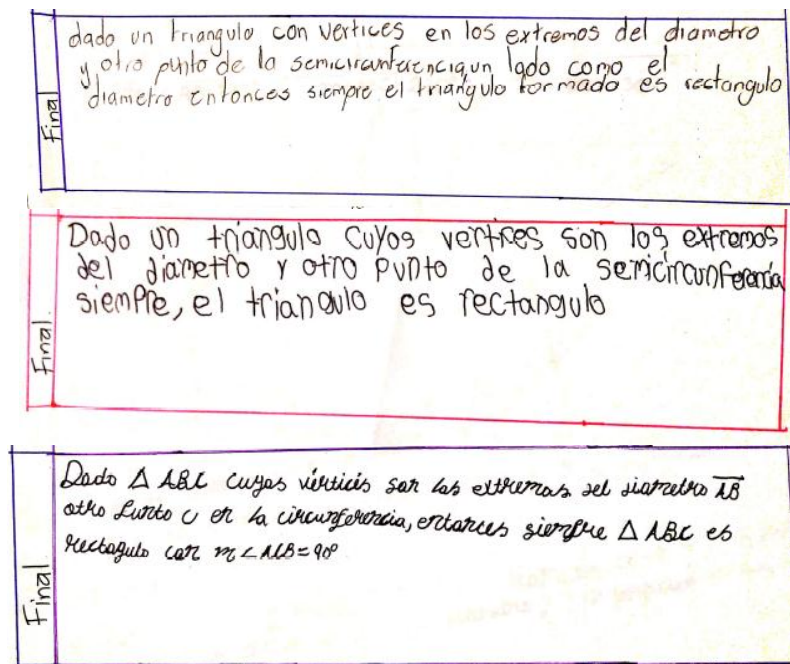 dado un triangulo con vertices en los extremos del diametro
y otro punto de la semicircunferencia, un lado como el
diametro entonces siempre el triangulo formado es rectangulo
Final
Dado un triangulo cuyos vertices son los extremos
del diametro y otro punto de la semicircunferencia
siempre, el triangulo es rectangulo
Final.
Dado △ ABC cuyos vérticis son los extremos del diametro AB
otro punto C en la circunferencia, entonces siempre △ ABC es
rectagulo con m∠ACB=90°
Final